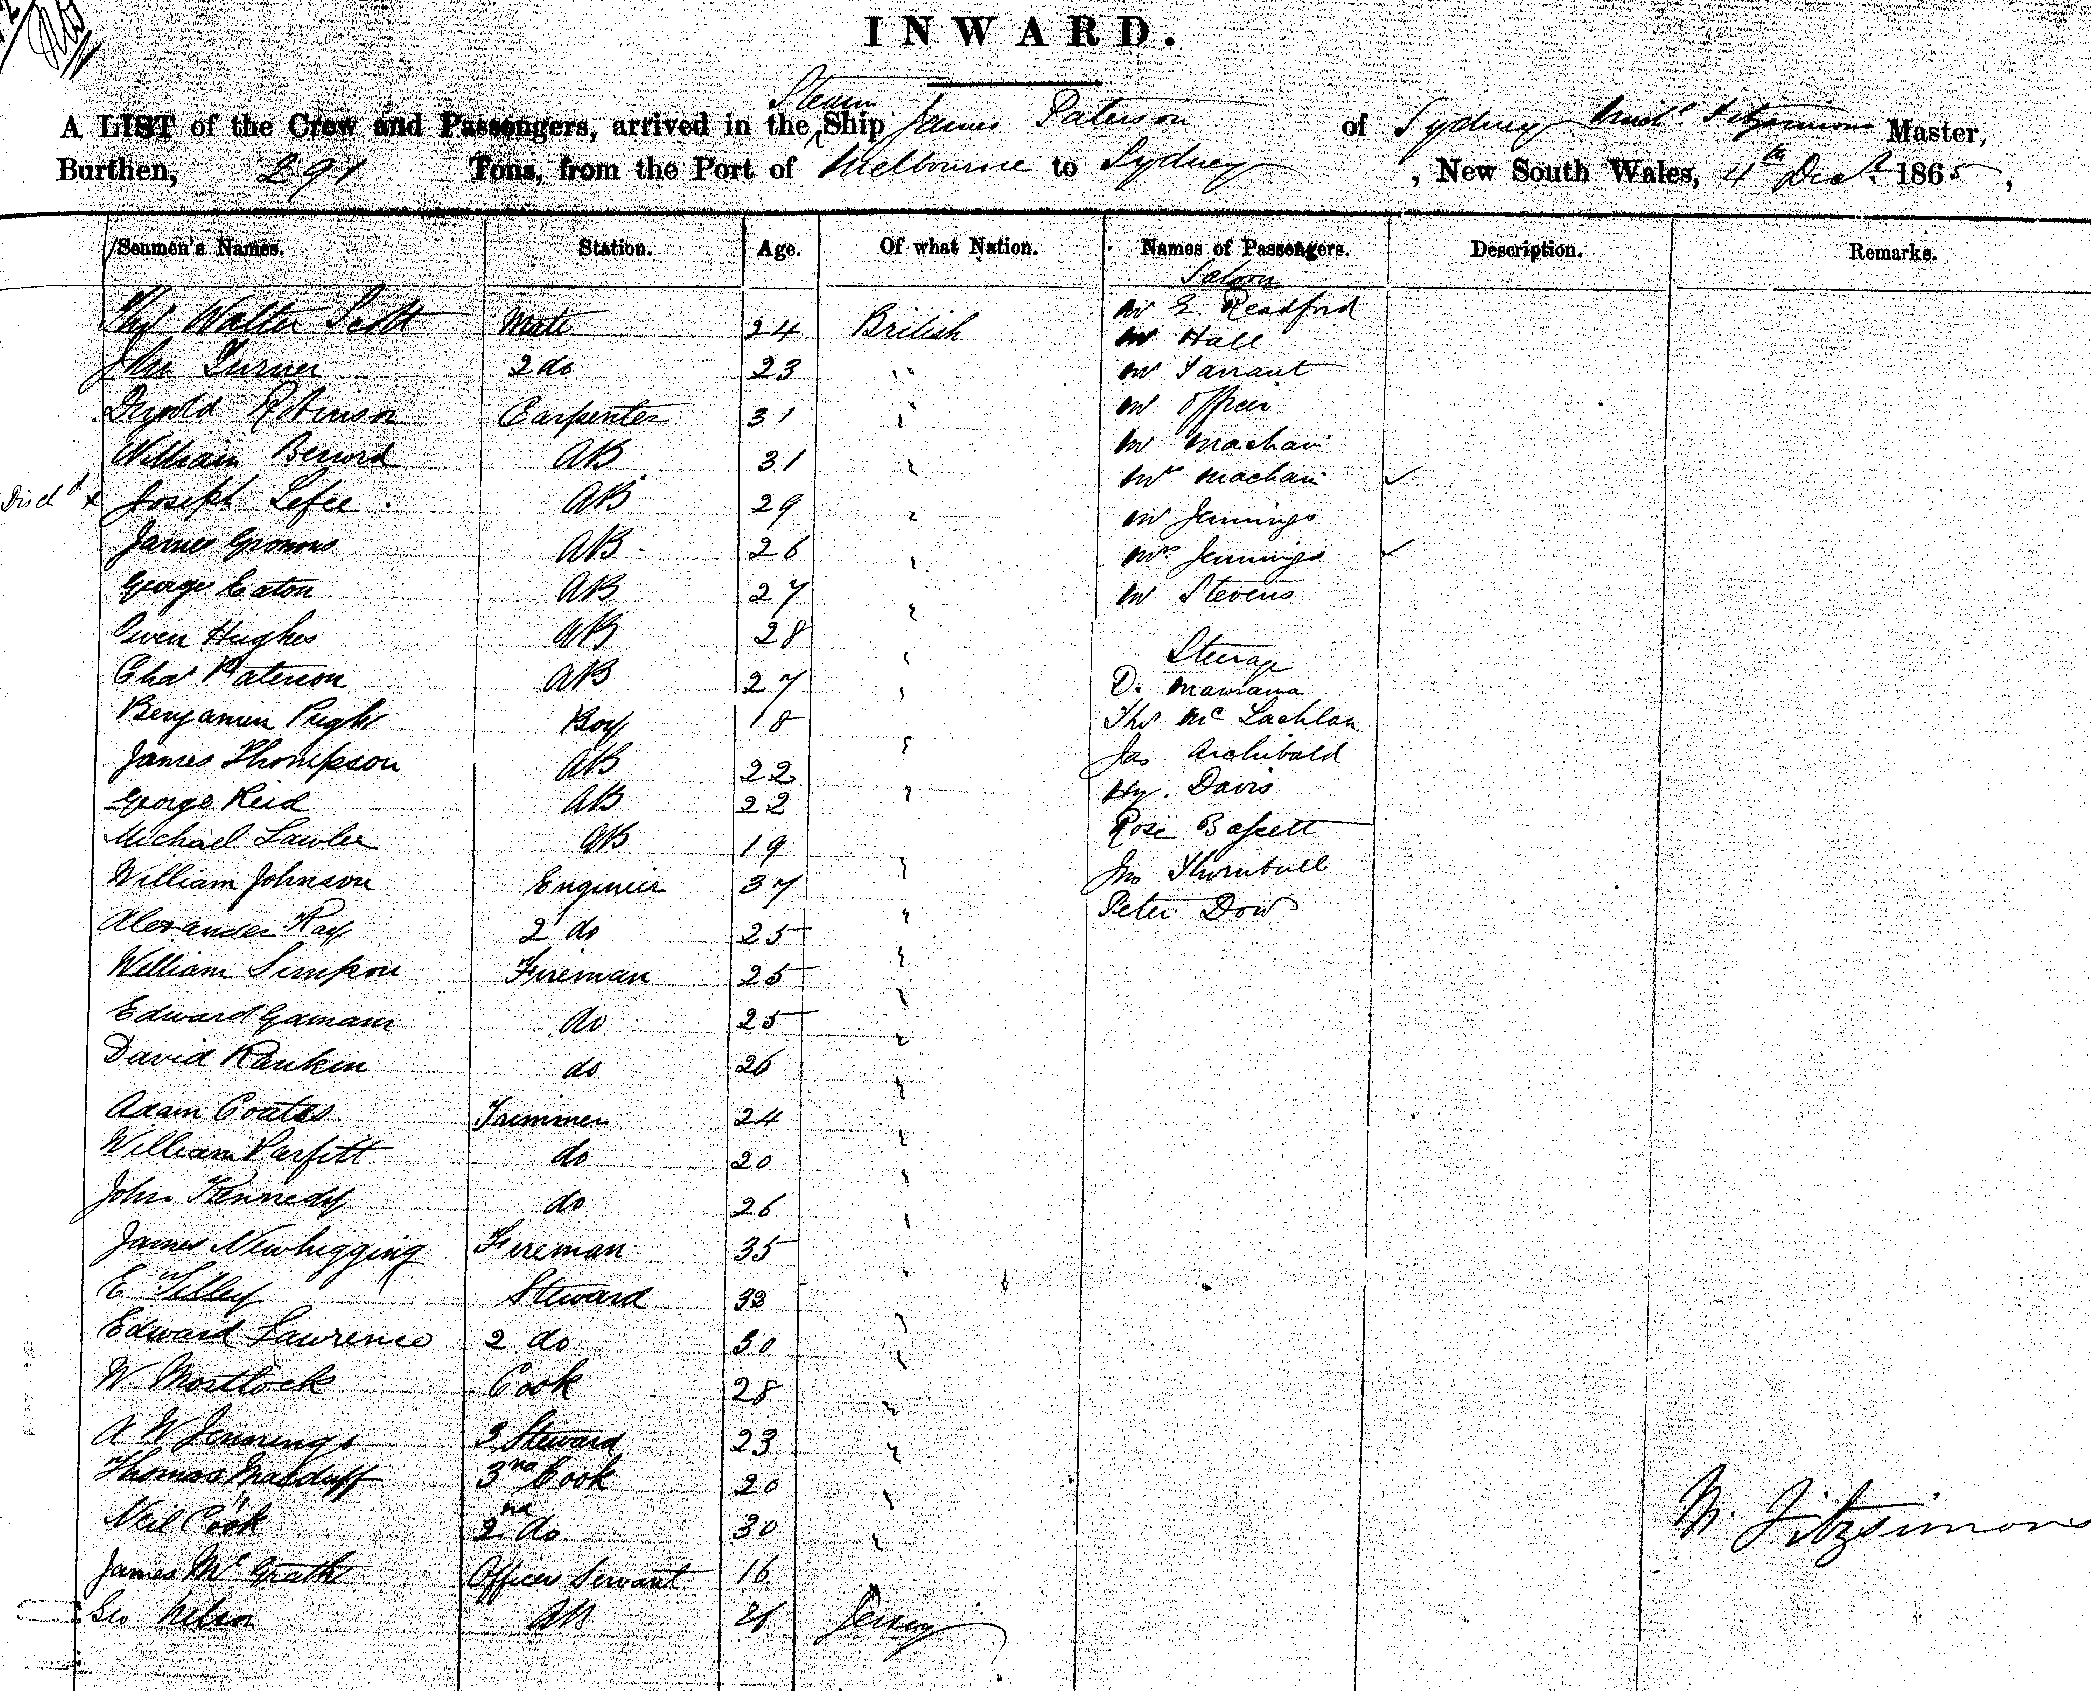 INWARD.
Steam
A LIST of the Crew and Passengers, arrived in the Ship James Paterson of Sydney Fitzsimons Master,
Burthen, 291 Tons, from the Port of Melbourne to Sydney, New South Wales, 4th Decr. 1865,
Seamen's Names. Station. Age. Of what Nation. Names of Passengers. Description. Remarks.
Saloon
Walter Scott Mate 24 British Mr E Readford
Mr Hall
John Turner 2 do 23 " Mr Tarrant
Robinson Carpenter 31 " Mr Officer
William AB 31 " Mr Machair
Disch'd x Joseph Lefee AB 29 " Mrs Machair ✓
Mr Jennings
James AB 26 " Mrs Jennings ✓
George Eaton AB 27 " Mr Stevens
Owen Hughes AB 28 "
Steerage
Chas Paterson AB 27 " D.
Benjamin Pugh Boy 18 Thos McLachlan
James Thompson AB 22 " Jas Archibald
George Reid AB 22 " Hy. Davis
Michael Lawler AB 19 Rose Bassett
William Johnson Engineer 37 " Jno Thornbull
Alexander Kay 2 do 25 " Peter Dow
William Simpson Fireman 25 "
Edward do 25 "
David Rankin do 26 "
Adam Coates Trimmer 24 "
William Parfitt do 20 "
John Kennedy do 26 "
James Newbigging Fireman 35 "
E Tilley Steward 33 "
Edward Lawrence 2 do 30 "
W Mortlock Cook 28 "
A W Jennings 2 Steward 23 "
Thomas Macduff 3rd Cook 20 "
Neil Cook 2nd do 30 "
M. Fitzsimons
James McGrath Officers Servant 16
Geo Nelson AB 26 Jersey